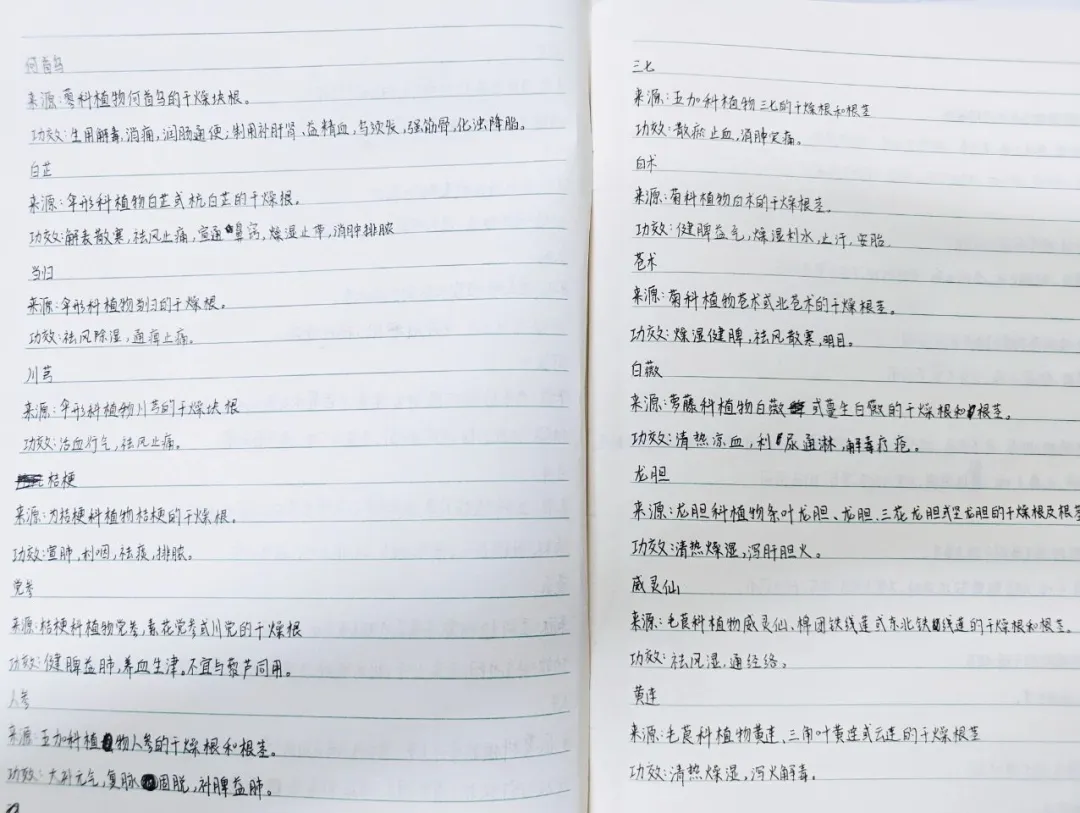 何首乌
来源:蓼科植物何首乌的干燥块根。
功效:生用解毒,消痈,润肠通便;制用补肝肾、益精血,乌须发,强筋骨,化浊降脂。
白芷
来源:伞形科植物白芷或杭白芷的干燥根。
功效:解表散寒,祛风止痛,宣通鼻窍,燥湿止带,消肿排脓
当归
来源:伞形科植物当归的干燥根。
功效:祛风除湿,通痹止痛。
川芎
来源:伞形科植物川芎的干燥块根
功效:活血行气,祛风止痛。
桔梗
来源:为桔梗科植物桔梗的干燥根。
功效:宣肺,利咽,祛痰,排脓。
党参
来源:桔梗科植物党参,素花党参或川党的干燥根
功效:健脾益肺,养血生津。不宜与藜芦同用。
人参
来源:五加科植物人参的干燥根和根茎。
功效:大补元气,复脉固脱,补脾益肺。
三七
来源:五加科植物三七的干燥根和根茎
功效:散瘀止血,消肿定痛。
白术
来源:菊科植物白术的干燥根茎。
功效:健脾益气,燥湿利水,止汗,安胎.
苍术
来源:菊科植物苍术或北苍术的干燥根茎。
功效:燥湿健脾,祛风散寒,明目。
白薇
来源:萝藦科植物白薇或蔓生白薇的干燥根和根茎。
功效:清热凉血,利尿通淋,解毒疗疮。
龙胆
来源:龙胆科植物条叶龙胆、龙胆、三花龙胆或坚龙胆的干燥根及根茎
功效:清热燥湿,泻肝胆火。
威灵仙
来源:毛茛科植物威灵仙、棉团铁线莲或东北铁线莲的干燥根和根茎。
功效:祛风湿,通经络。
黄连
来源:毛茛科植物黄连、三角叶黄连或云连的干燥根茎
功效:清热燥湿,泻火解毒。